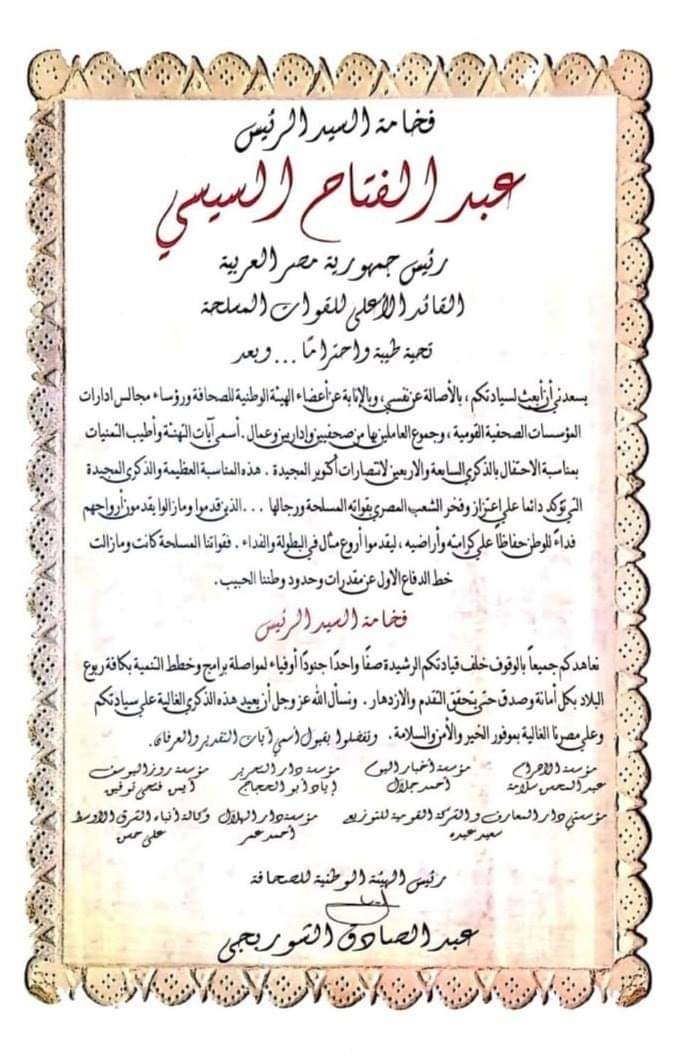 فخامة السيد الرئيس
عبد الفتاح السيسي
رئيس جمهورية مصر العربية
القائد الأعلى للقوات المسلحة
تحية طيبة واحترامًا ... وبعد
يسعدني أن أبعث لسيادتكم ، بالأصالة عن نفسي ، وبالإنابة عن أعضاء الهيئة الوطنية للصحافة ورؤساء مجالس ادارات
المؤسسات الصحفية القومية ، وجموع العاملين بها من صحفيين وإداريين وعمال . أسمى آيات التهنئة وأطيب التمنيات
بمناسبة الاحتفال بالذكرى السابعة والاربعين لانتصارات أكتوبر المجيدة . هذه المناسبة العظيمة والذكرى المجيدة
التي تؤكد دائما على اعتزاز وفخر الشعب المصري بقواته المسلحة ورجالها ... الذين قدموا ومازالوا يقدمون أرواحهم
فداءً للوطن حفاظاً على كرامته وأراضيه ، ليقدموا أروع مثال في البطولة والفداء . فقواتنا المسلحة كانت ومازالت
خط الدفاع الاول عن مقدرات وحدود وطننا الحبيب .
فخامة السيد الرئيس
نعاهدكم جميعاً بالوقوف خلف قيادتكم الرشيدة صفًا واحدًا جنودًا أوفياء لمواصلة برامج وخطط التنمية بكافة ربوع
البلاد بكل أمانة وصدق حتى يتحقق التقدم والازدهار . ونسأل الله عز وجل أن يعيد هذه الذكرى الغالية على سيادتكم
وعلى مصرنا الغالية بموفور الخير والأمن والسلامة . وتفضلوا بقبول أسمى آيات التقدير والعرفان .
مؤسسة الأهرام مؤسسة أخبار اليوم مؤسسة دار التحرير مؤسسة روز اليوسف
عبد المحسن سلامة أحمد جلال إياد أبو الحجاج أيمن فتحى توفيق
مؤسستي دار المعارف والشركة القومية للتوزيع مؤسسة دار الهلال وكالة أنباء الشرق الأوسط
سعيد عبده أحمد عمر على حسن
رئيس الهيئة الوطنية للصحافة
عبد الصادق الشوربجى